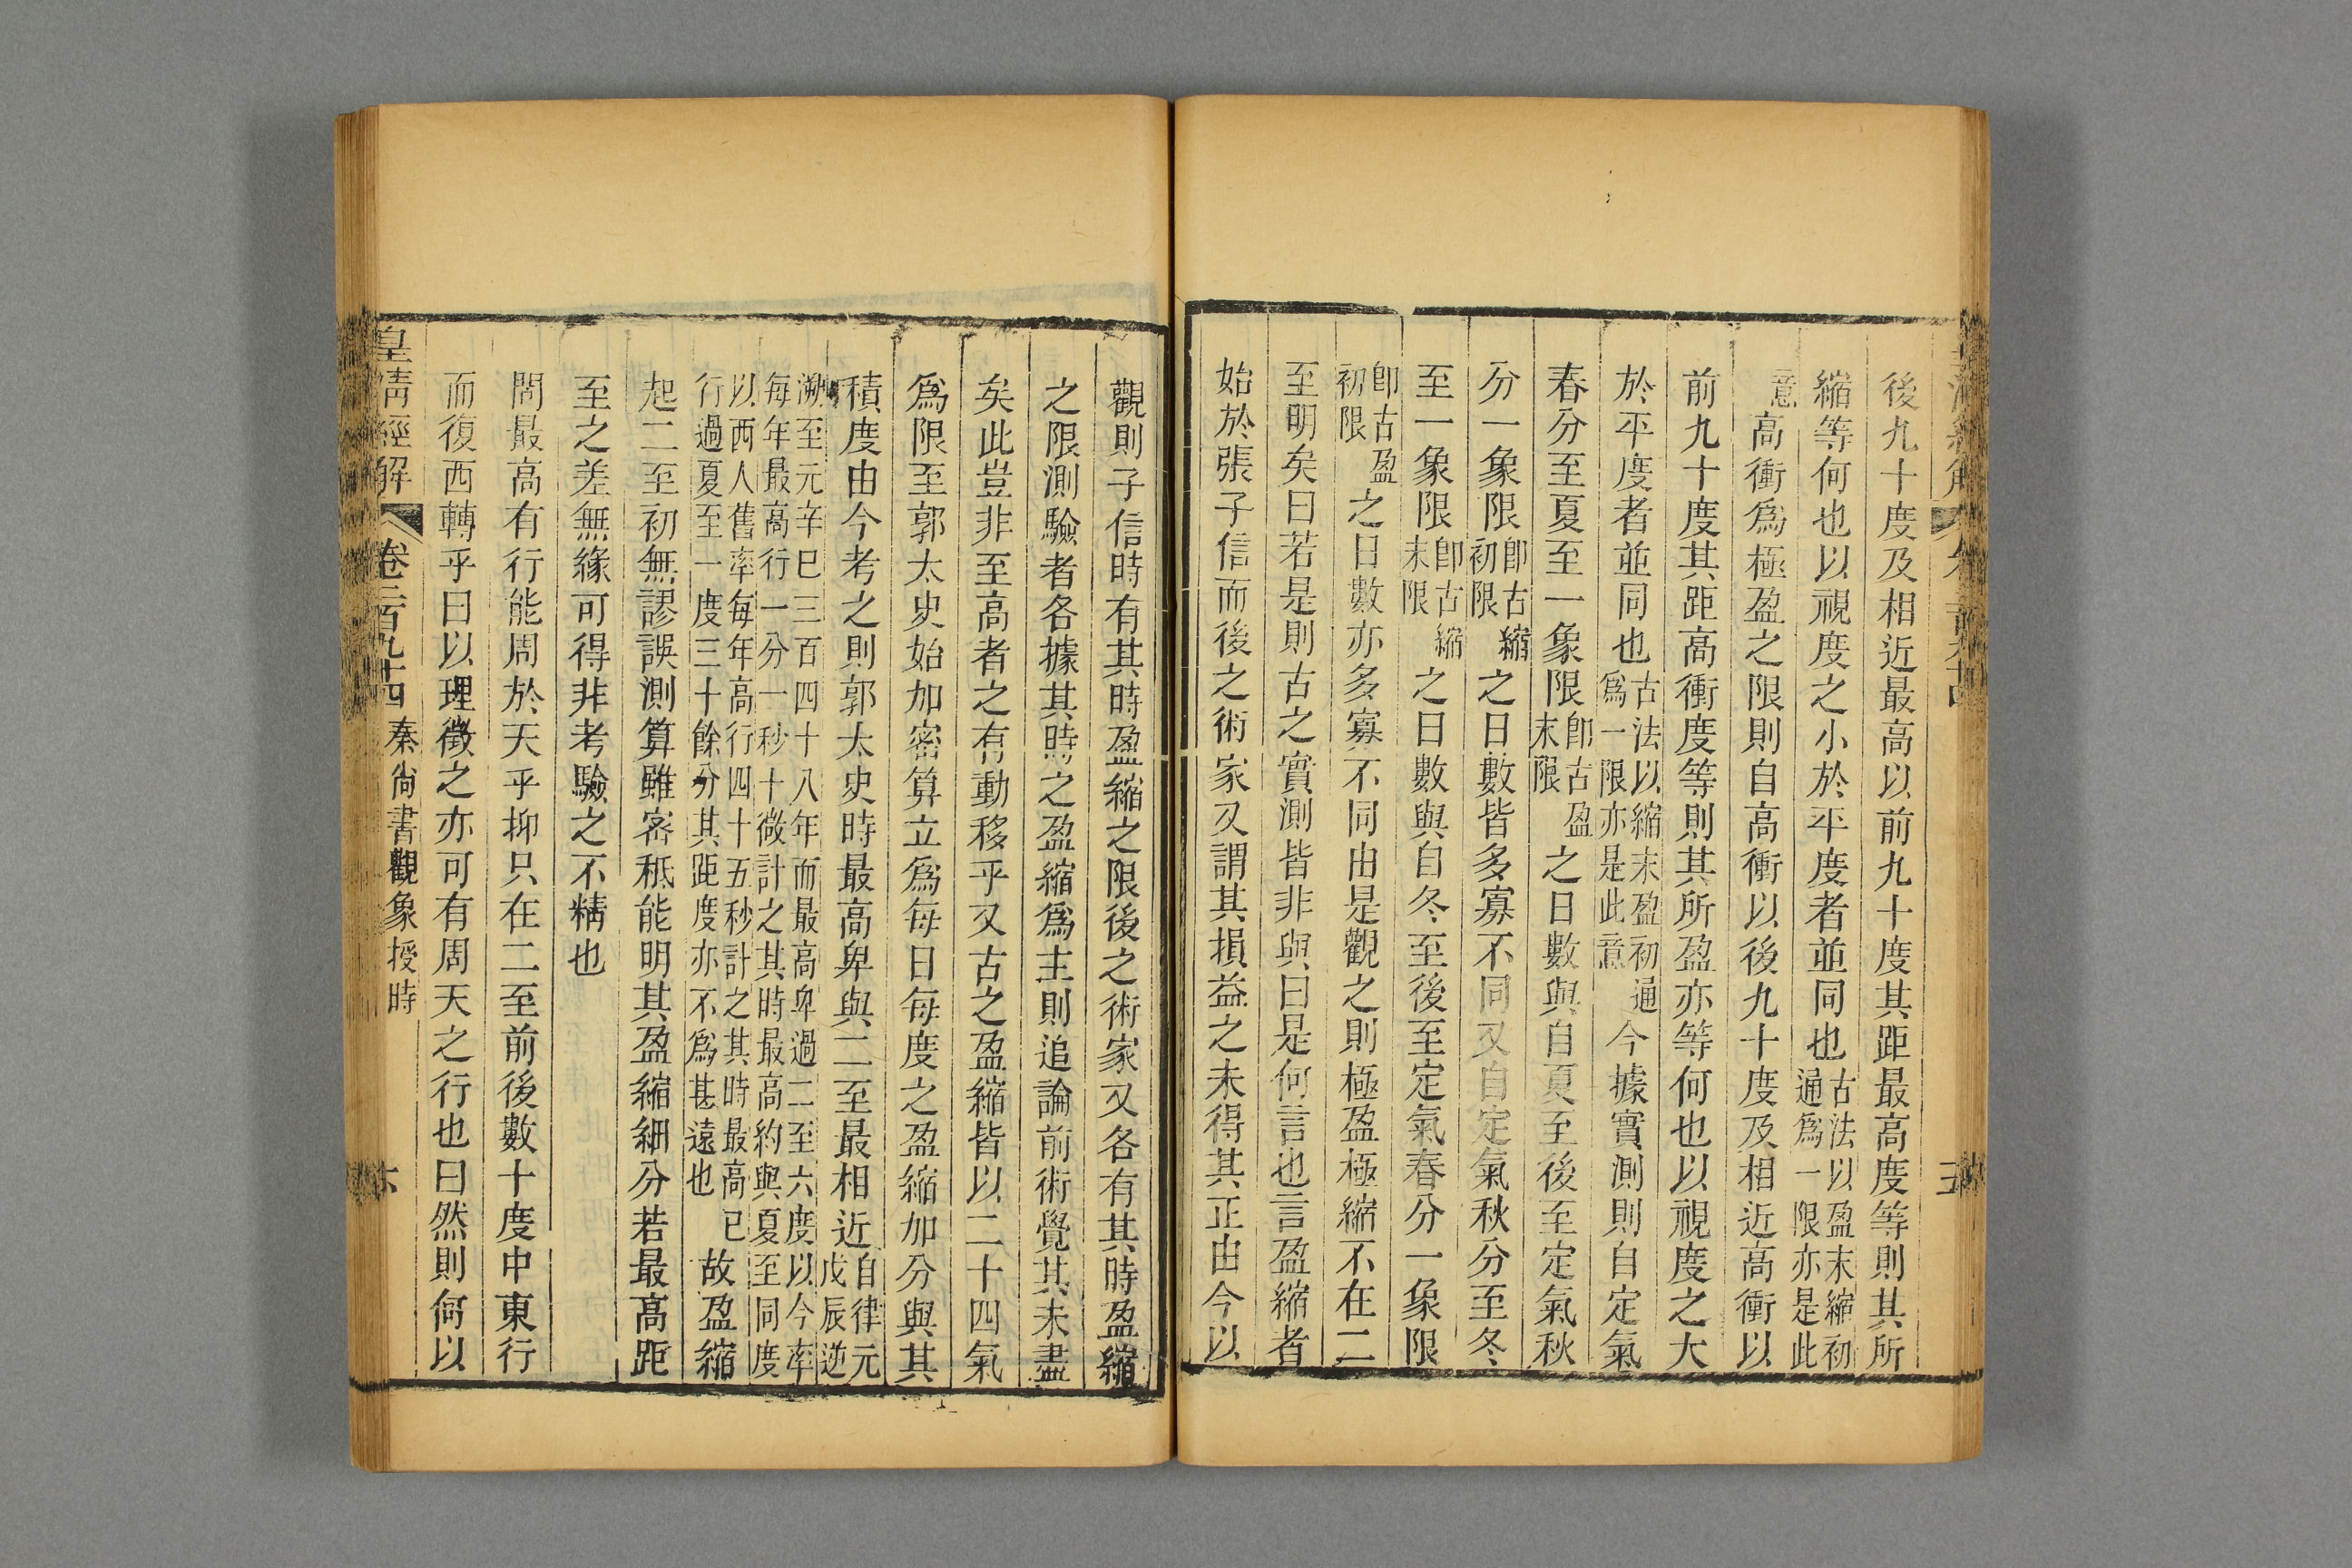 後九十度及相近最高以前九十度其距最高度等則其所
縮等何也以視度之小於平度者並同也古法以盈末縮初通爲一限亦是此
意高衝爲極盈之限則自高衝以後九十度及相近高衝以
前九十度其距高衝度等則其所盈亦等何也以視度之大
於平度者並同也古法以縮末盈初通爲一限亦是此意今據實測則自定氣
春分至夏至一象限卽古盈末限之日數與自夏至後至定氣秋
分一象限卽古縮初限之日數皆多寡不同又自定氣秋分至冬
至一象限卽古縮末限之日數與自冬至後至定氣春分一象限
卽古盈初限之日數亦多寡不同由是觀之則極盈極縮不在二
至明矣曰若是則古之實測皆非與曰是何言也言盈縮者
始於張子信而後之術家又謂其損益之未得其正由今以
觀則子信時有其時盈縮之限後之術家又各有其時盈縮
之限測驗者各據其時之盈縮爲主則追論前術覺其未盡
矣此豈非至高者之有動移乎又古之盈縮皆以二十四氣
爲限至郭太史始加密算立爲每日每度之盈縮加分與其
積度由今考之則郭太史時最高卑與二至最相近自律元戊辰逆
溯至元辛巳三百四十八年而最高卑過二至六度以今率每年最高行一分一秒十微計之其時最高約與夏至同度
以西人舊率每年高行四十五秒計之其時最高已行過夏至一度三十餘分其距度亦不爲甚遠也故盈縮
起二至初無謬誤測算雖密秪能明其盈縮細分若最高距
至之差無緣可得非考驗之不精也
問最高有行能周於天乎抑只在二至前後數十度中東行
而復西轉乎曰以理徵之亦可有周天之行也曰然則何以
皇清經解 卷二百九十四 秦尚書觀象授時 六